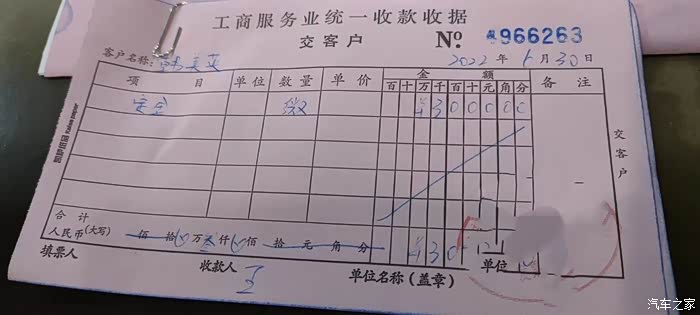 工商服务业统一收款收据
交客户 № 4966263
客户名称: 2022年6月30日
项目 单位 数量 单价 金额 备注
百 十 万 千 百 十 元 角 分
定金 ¥ 3 0 0 0 0 0
合计
人民币(大写) 佰 拾 万 叁 仟 佰 拾 元 角 分 ¥ 3 0
填票人 收款人 王 单位名称(盖章)
单位
交客户
汽车之家